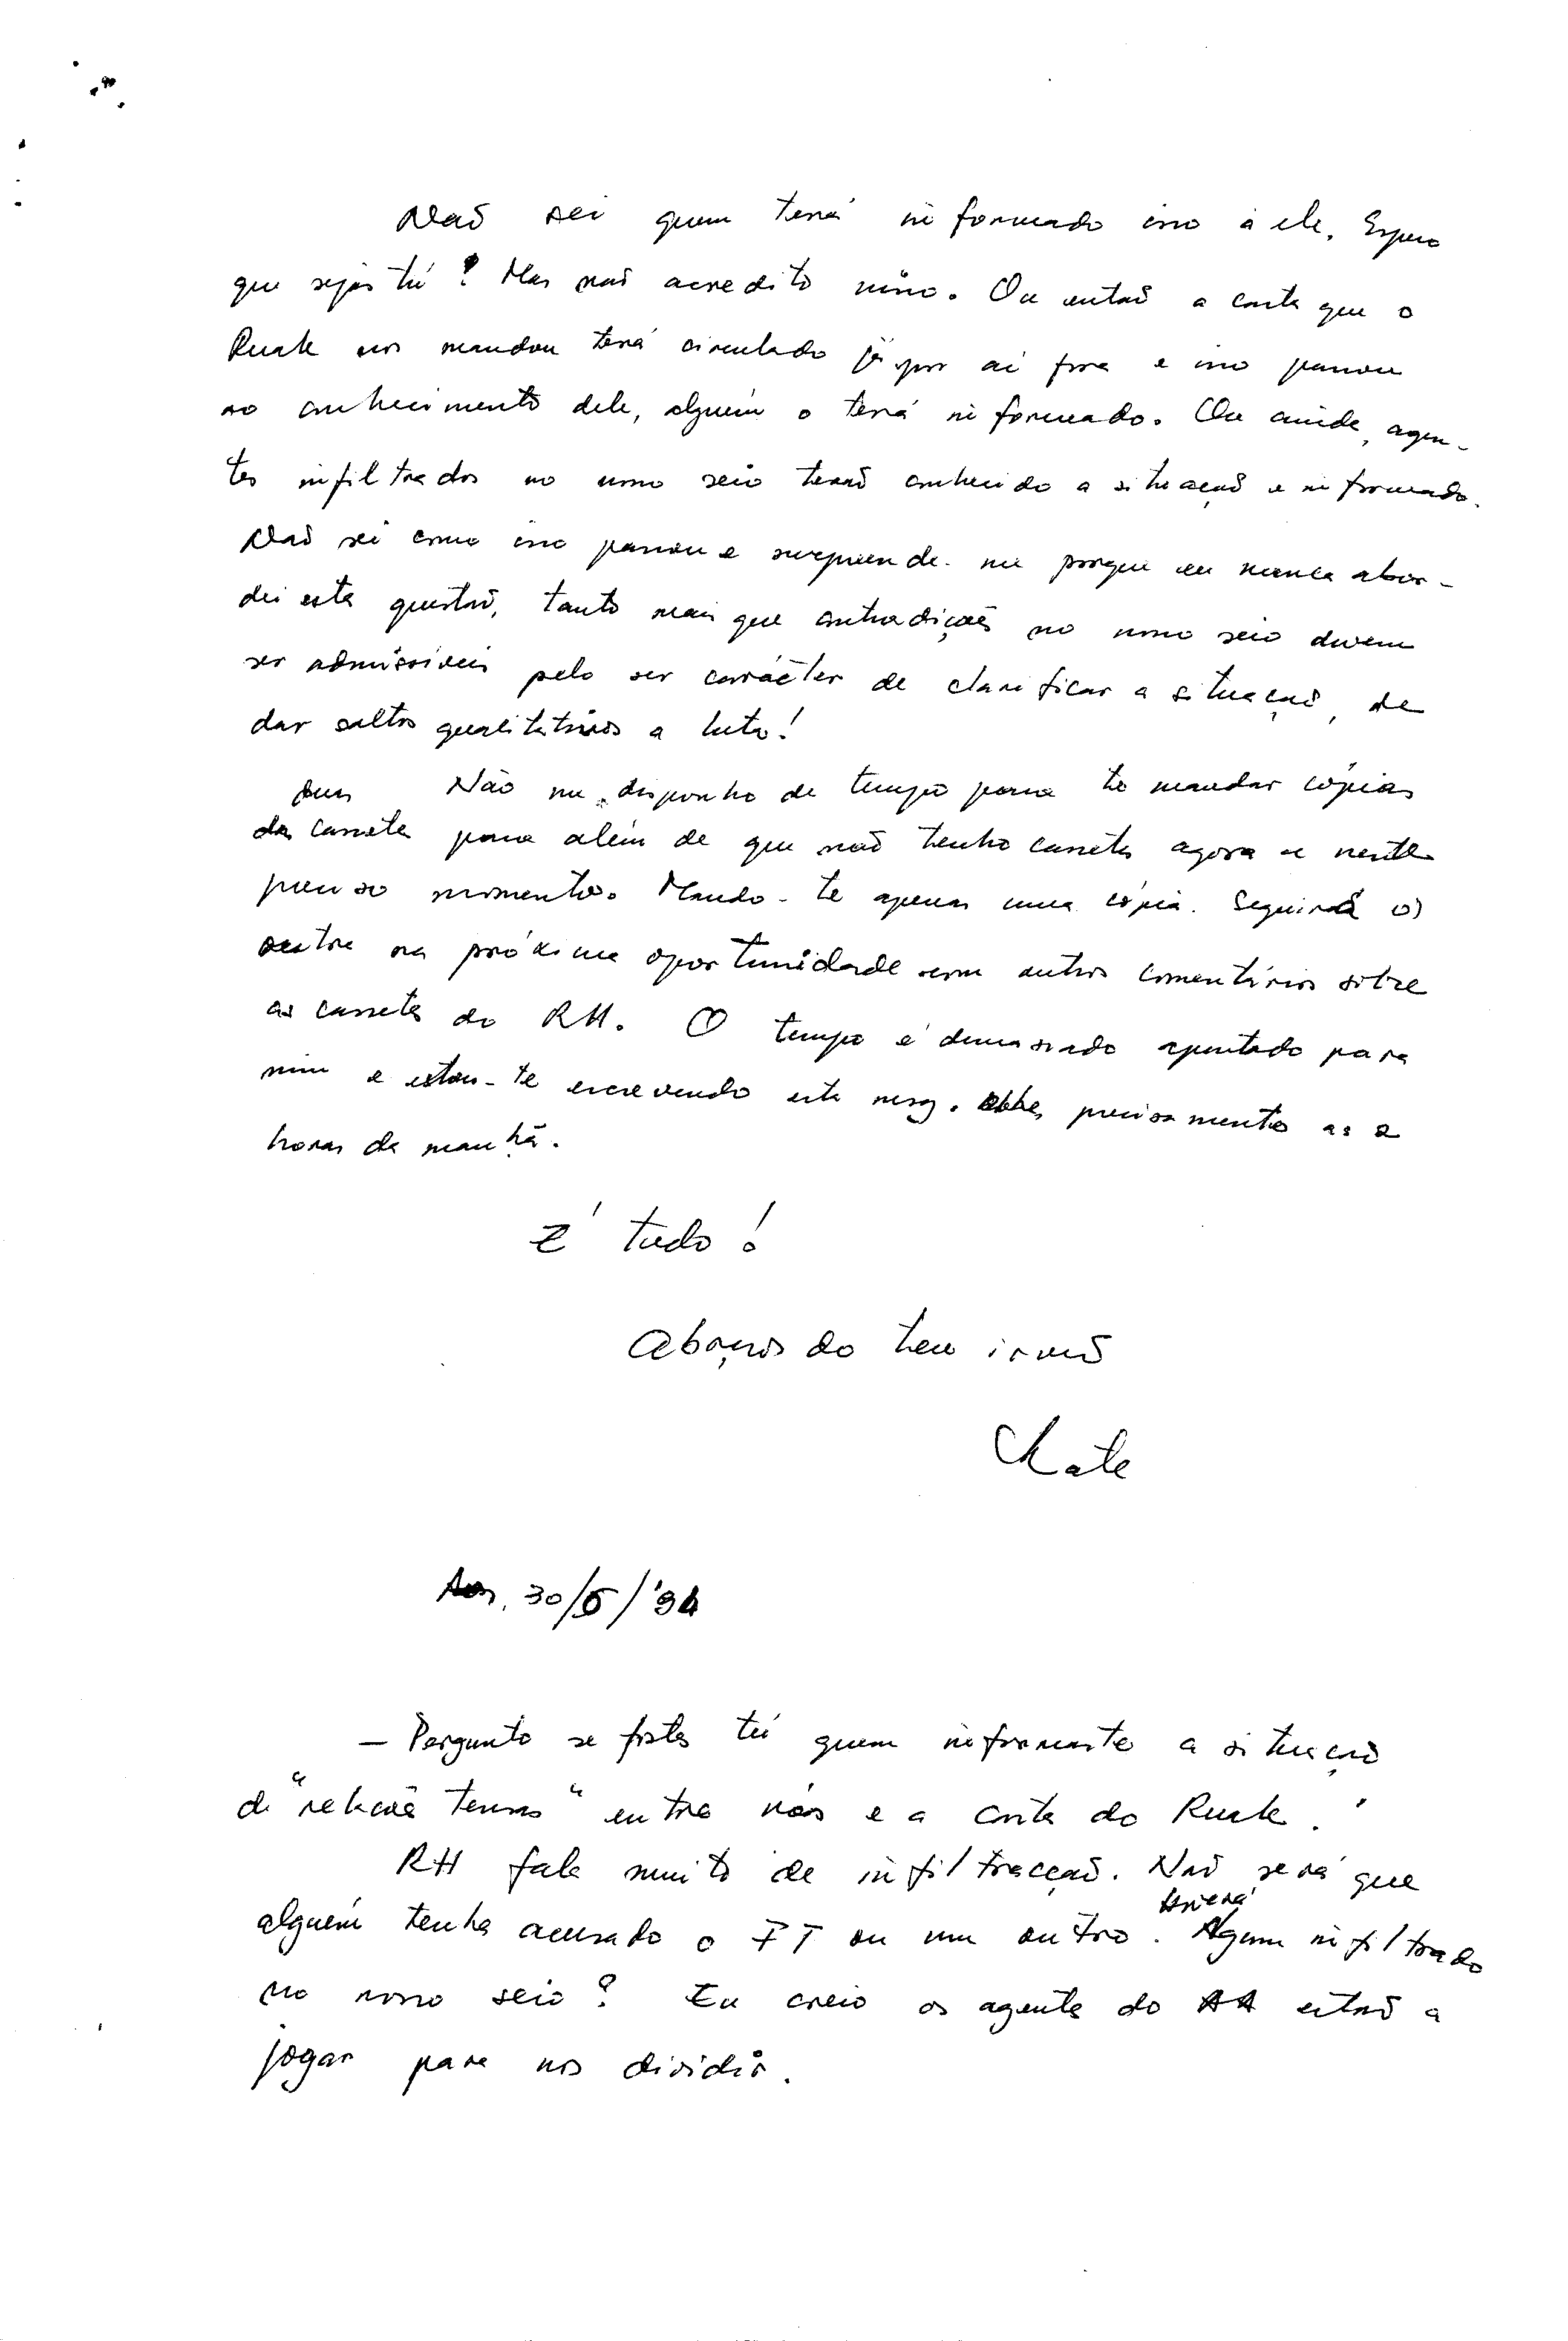 Naõ sei quem terá informado isso à ele. Espero
que sejas tú? Mas naõ acredito nisso. Ou entaõ a carta que o
Ruak nos mandou terá circulado já por aí fora e isso passou
ao conhecimento dele, alguém o terá informado. Ou ainda, agen-
tes infiltrados no nosso seio teraõ conhecido a situaçaõ e informado.
Naõ sei como isso passou e surpreende-me porque eu nunca abor-
dei esta questaõ, tanto mais que contradiçoẽs no nosso seio devem
ser admissíveis pelo ser carácter de clarificar a situaçaõ, de
dar saltos qualitativos a luta!
Não me disponho de tempo para te mandar cópias
das cassetes para além de que naõ tenho cassetes agora e neste
preciso momento. Mando-te apenas uma cópia. Seguirá o
outro na próxima oportunidade com outros comentários sobre
as cassetes do RH. O tempo é demasiado apertado para
mim e estou-te escrevendo esta msg. precisamente as 2
horas da manhã.
É tudo!
Abraços do teu irmaõ
Kate
30/5/'94
— Pergunto se fostes tú quem informaste a situaçaõ
de "relaçoẽs tensas" entre nós e a carta do Ruak.
RH fala muito de infiltracçaõ. Naõ será que
alguém tenha acusado o FT ou um outro. Haverá
Algum infiltrado
no nosso seio? Eu creio os agentes do AA estaõ a
jogar para nos dividir.